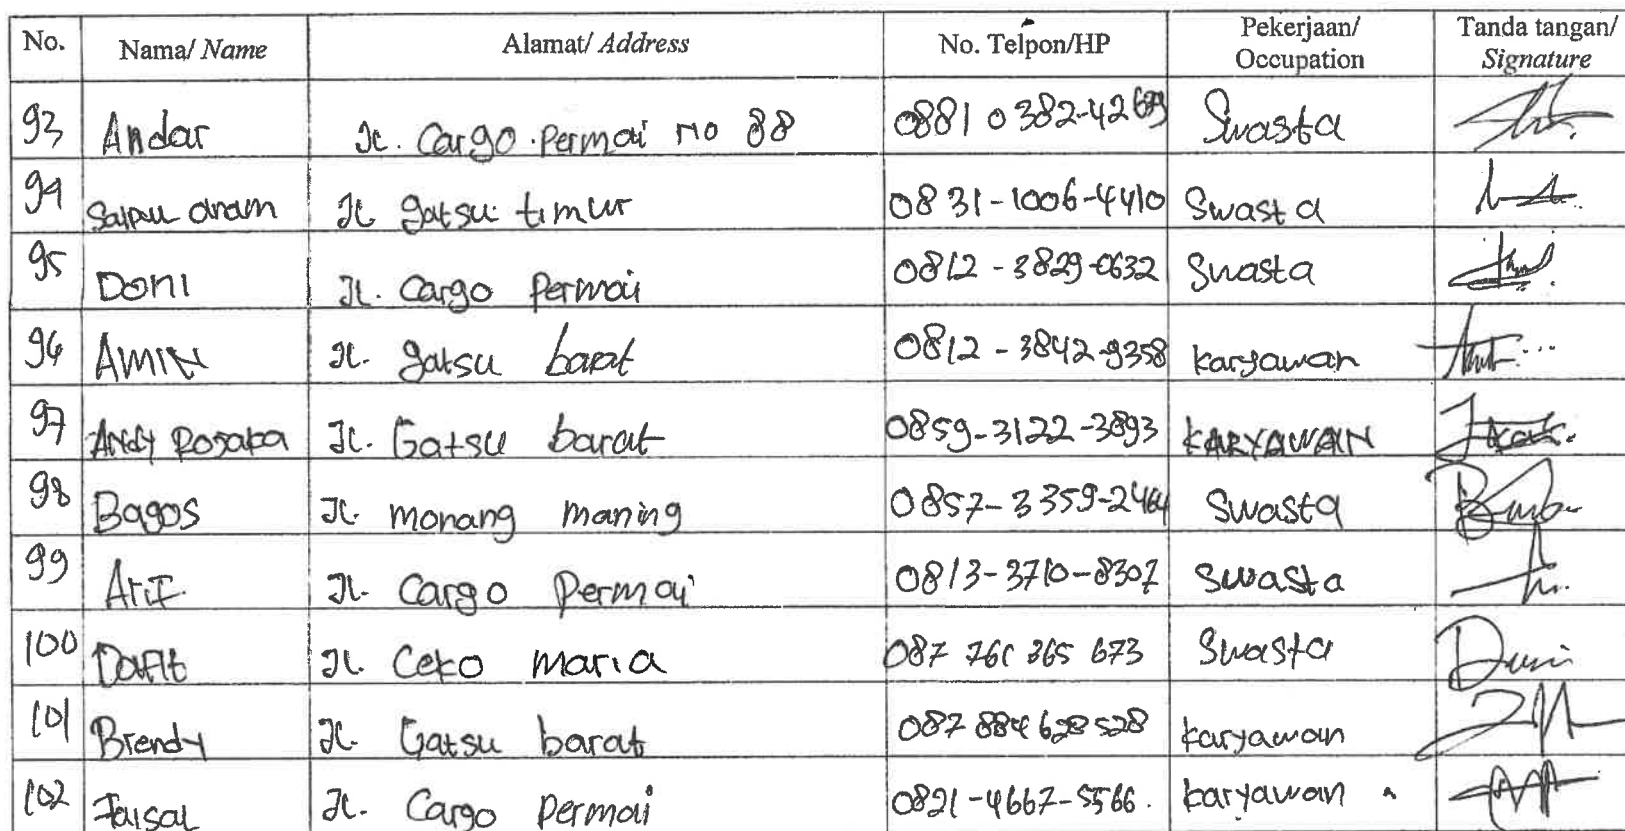 No. Nama/ Name Alamat/ Address No. Telpon/HP Pekerjaan/ Occupation Tanda tangan/ Signature
93 Andar Jl. Cargo Permai no 88 0881 0382-42689 Swasta
94 Saipul anam Jl gatsu timur 0831-1006-4410 Swasta
95 Doni Jl. Cargo Permai 0812-3829-0632 Swasta
96 AMIN Jl. gatsu barat 0812-3842-9358 karyawan
97 Andy Jl. Gatsu barat 0859-3122-3893 KARYAWAN
98 Bagos Jl. monang maning 0857-3359-2464 Swasta
99 Arif Jl. Cargo Permai 0813-3710-8307 Swasta
100 Dafit Jl Ceko maria 087 761 365 673 Swasta
101 Brendy Jl. Gatsu barat 087 884 628 528 karyawan
102 Faisal Jl. Cargo Permai 0821-4667-5566. karyawan